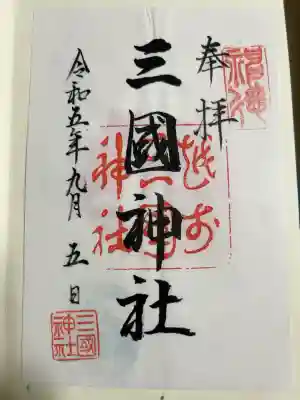 奉拝
三國神社
令和五年九月五日
越前
三國
神社
三國
神社